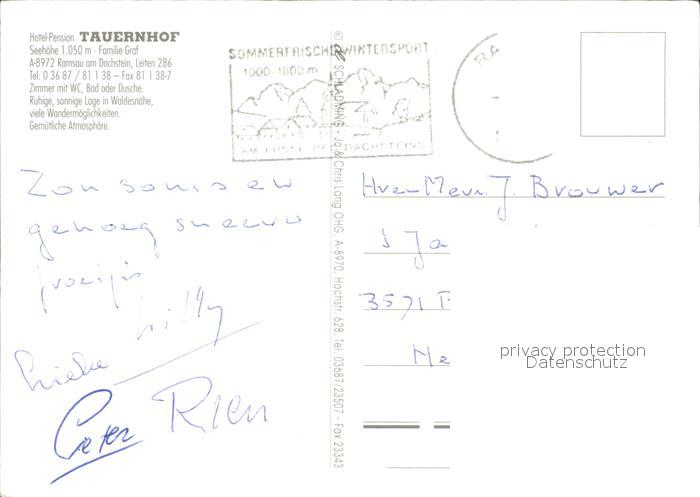 Hotel-Pension TAUERNHOF
Seehöhe 1.050 m · Familie Graf
A-8972 Ramsau am Dachstein, Leiten 286
Tel. 0 36 87 / 81 1 38 – Fax 81 1 38-7
Zimmer mit WC, Bad oder Dusche.
Ruhige, sonnige Lage in Waldesnähe,
viele Wandermöglichkeiten.
Gemütliche Atmosphäre.
SOMMERFRISCHE WINTERSPORT
1000-1800 m
AM FUSSE DES DACHSTEINS
RA
© SCHLADMING - Jo & Chris Lang OHG, A-8970, Hochstr. 628, Tel. 03687/23507 - Fax 23343
Zon soms en
genoeg sneeuw
groetjes
Willy
Lieke
Peter Rien
J. Brouwer
Ja
3571
Ne
privacy protection
Datenschutz